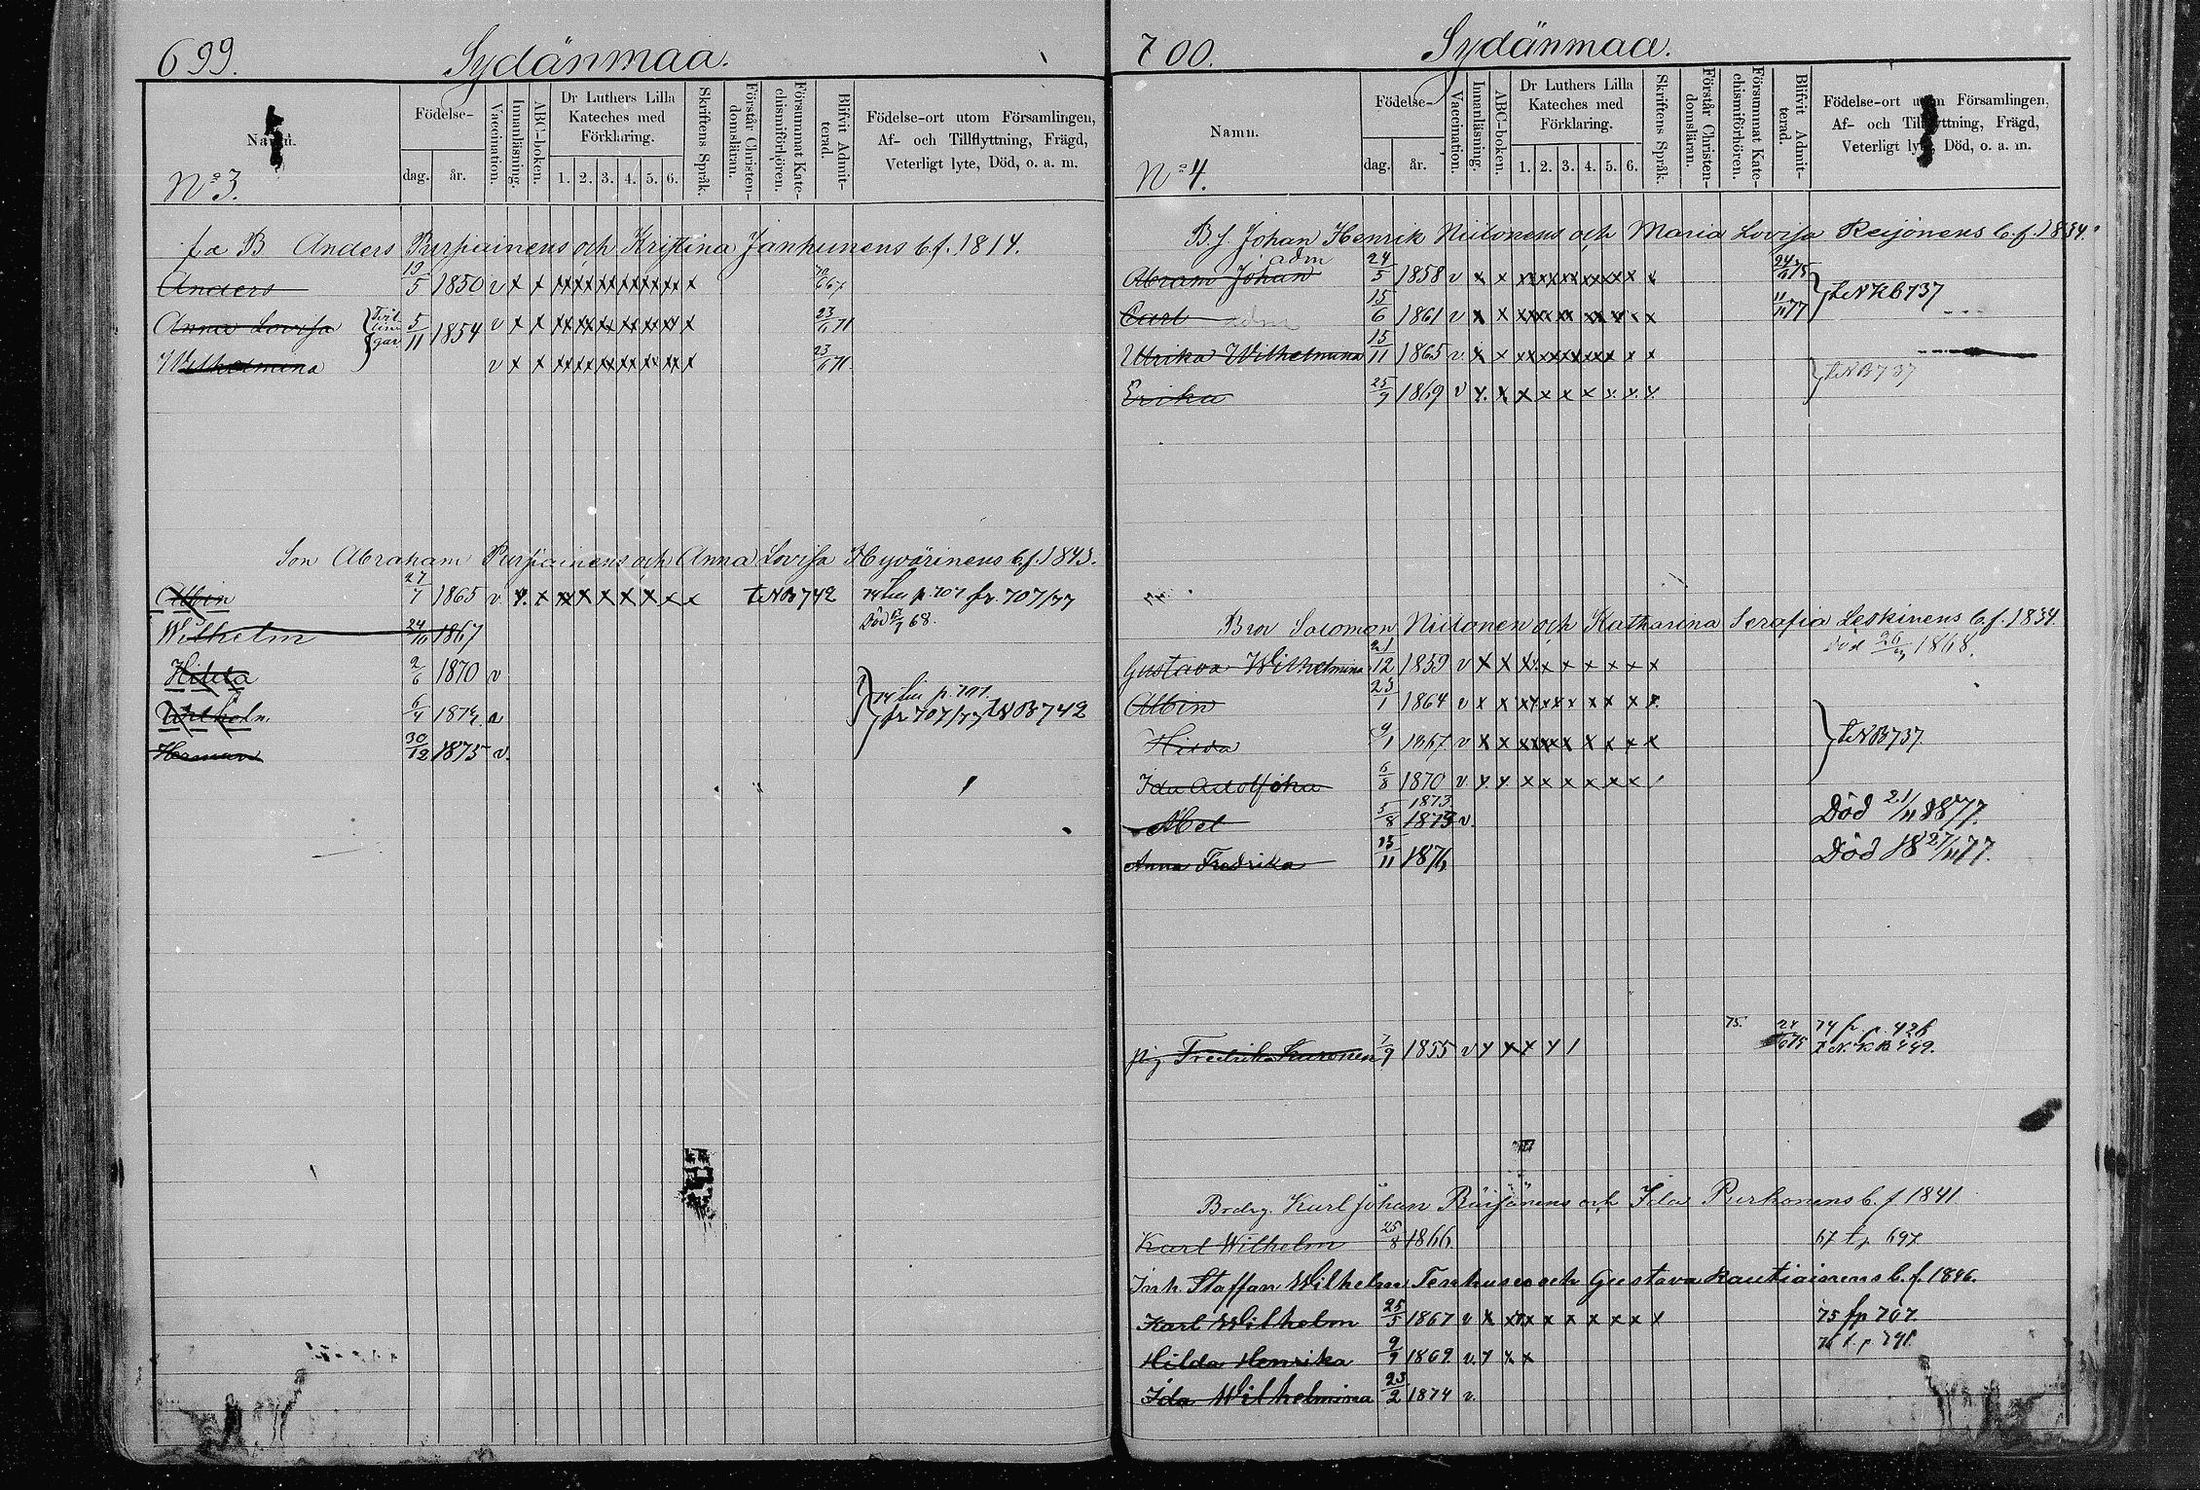 699. Sydänmaa.
Namn. Födelse- dag. år. Vaccination. Innanläsning. ABC-boken. Dr Luthers Lilla Kateches med Förklaring. 1. 2. 3. 4. 5. 6. Skriftens Språk. Förstår Christendomsläran. Försummat Katechismiförhören. Blifvit Admitterad. Födelse-ort utom Församlingen, Af- och Tillflyttning, Frägd, Veterligt lyte, Död, o. a. m.
No 3.
f. a B Anders Purpiainens och Kristina Janhunens b.f. 1814.
Anders 19/5 1850 v x x
Anna Lovisa Tvillingar 5/11 1854 v x x 23/6 71
Wilhelmina v x x 23/6 71
Son Abraham Purpiainens och Anna Lovisa Hyvärinens b.f. 1843.
Albin 27/7 1865 v. t. N B 742 p. 707 fr. 707/77
Wilhelm 24/10 1867 Död 68.
Hilda 2/6 1870 v
Wilhelm. 6/4 1874 v p. 707
fr 707/77 t N B 742
Herman 30/12 1875 v.
700. Sydänmaa.
Namn. Födelse- dag. år. Vaccination. Innanläsning. ABC-boken. Dr Luthers Lilla Kateches med Förklaring. 1. 2. 3. 4. 5. 6. Skriftens Språk. Förstår Christendomsläran. Försummat Katechismiförhören. Blifvit Admitterad. Födelse-ort utom Församlingen, Af- och Tillflyttning, Frägd, Veterligt lyte, Död, o. a. m.
No 4.
B. f. Johan Henrik Niilonens och Maria Lovisa Reijonens b.f. 1834.
adm
Abram Johan 24/5 1858 v x x 24/6 75
Carl adm 15/6 1861 v x x 11/11 77 t. N K B 737
Ulrika Wilhelmina 15/11 1865 v. x x
Erika 25/9 1869 v x x t N B 737
Bror Salomon Niilonen och Katharina Serafia Leskinens b.f. 1834.
Gustava Wilhelmina 21/12 1859 v x x Död 1868
Albin 23/1 1864 v x x
Hilda 9/1 1867 v x x t. N B 737.
Ida Adolfina 6/8 1870 v x x
Abel 5/8 1873 1873 v. Död 21/11 1877.
Anna Fredrika 13/11 1876 Död 18 27/11 77.
pig Fredrika Kuronen 7/9 1855 v x x x x 1 75. 24/6 75 74 fr. p. 426
t N. K B 449.
Brdrg. Karl Johan Räisänens och Ida Purhonens b.f 1841
Karl Wilhelm 25/8 1866 67 t. p 697
Inh. Staffan Wilhelm Tenhusen och Gustava Rautiainens b.f. 1846.
Karl Wilhelm 25/5 1867 v x x 75 fp 707.
Hilda Henrika 9/9 1869 v. x x x
Ida Wilhelmina 23/2 1874 v.